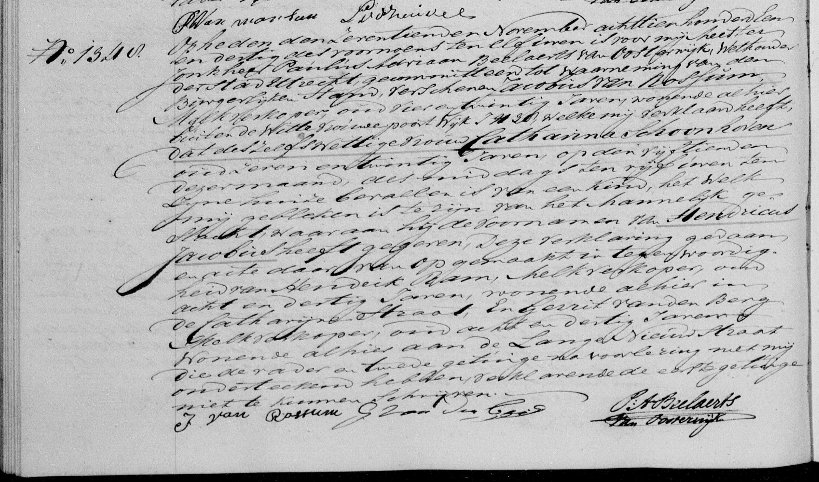 N:o 1348.
Op heden den zeventienden November achttien honderd een
en dertig des voormiddags ten elf uren is voor mij heer
Jonkheer Paulus Adriaan Beelaerts van Oosterwijk, Wethouder
der Stad Utrecht gecommitteerd tot waarneming van den
Burgerlijken Stand, verschenen Jacobus van Rossum
Melkverkoper, oud twintig Jaren, wonende alhier
buiten de Witte Vrouwe poort Wijk welke mij verklaard heeft,
dat deszelfs wettige vrouw Catharina Schoonhoven
oud zeven en twintig Jaren, op den vijftienden
dezer maand, des middags ten vijf uren ten
zijne huize bevallen is van een kind, het welk
mij gebleken is te zijn van het mannelijk ge-
slacht waaraan hij de voornamen van Hendricus
Jacobus heeft gegeven, Deze verklaring gedaan
en acte daar van opgemaakt in tegenwoordig-
heid van Hendrik Ram, Melkverkoper, oud
acht en dertig Jaren, wonende alhier in
de Catharijne Straat, en Gerrit van den Berg
Melkverkoper, oud acht en dertig Jaren
Wonende alhier aan de Lange Nieuw Straat
die de vader en tweede getuige na voorlezing met mij
onderteekend hebben, verklarende de eerste getuige
niet te kunnen schrijven.
J van Rossum G van den
P. A Beelaerts
van Oosterwijk